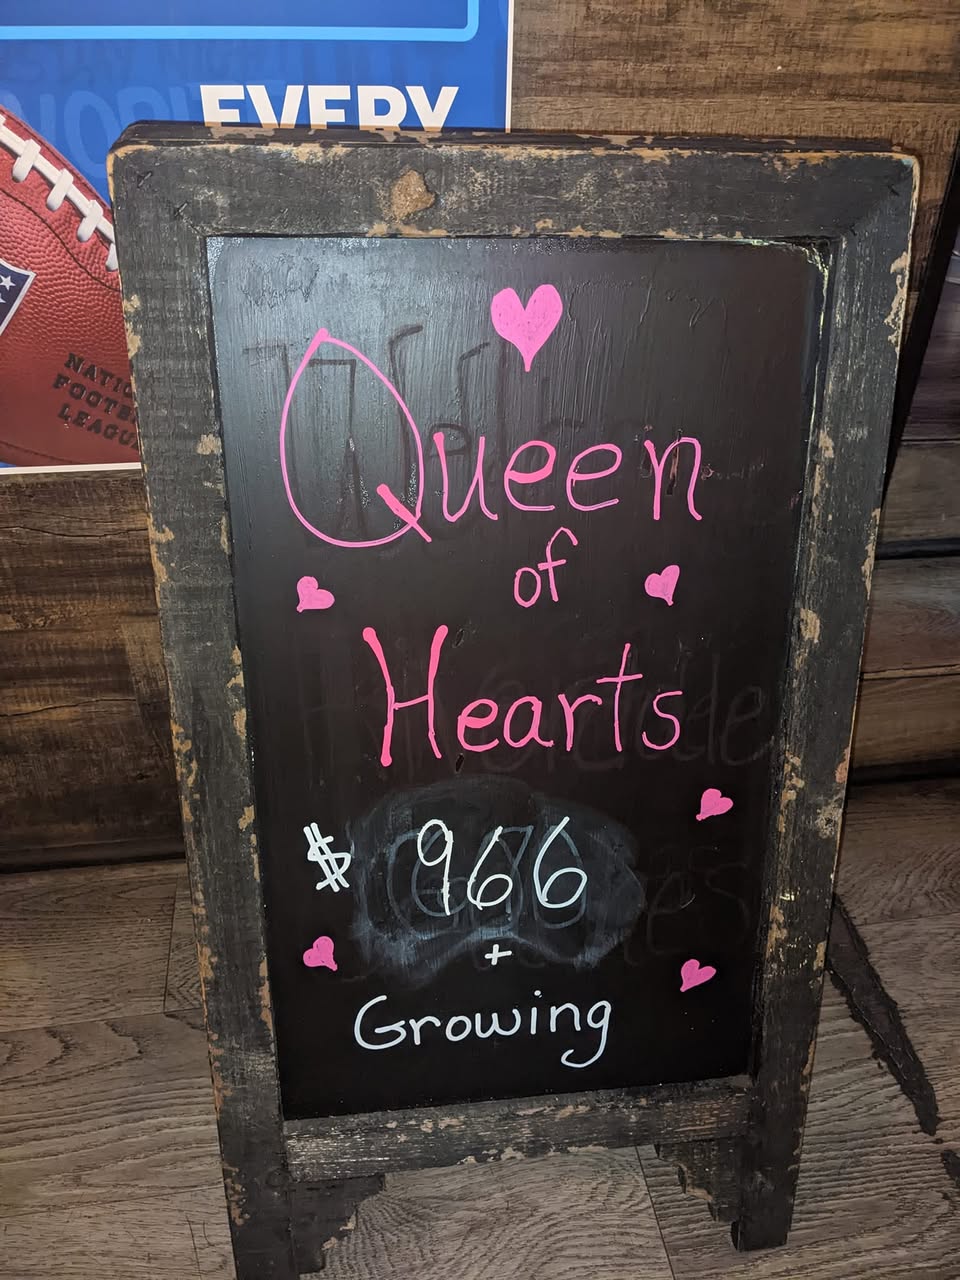 EVERY
NATIO
FOOTB
LEAGU
Queen
of
Hearts
$ 966
+
Growing